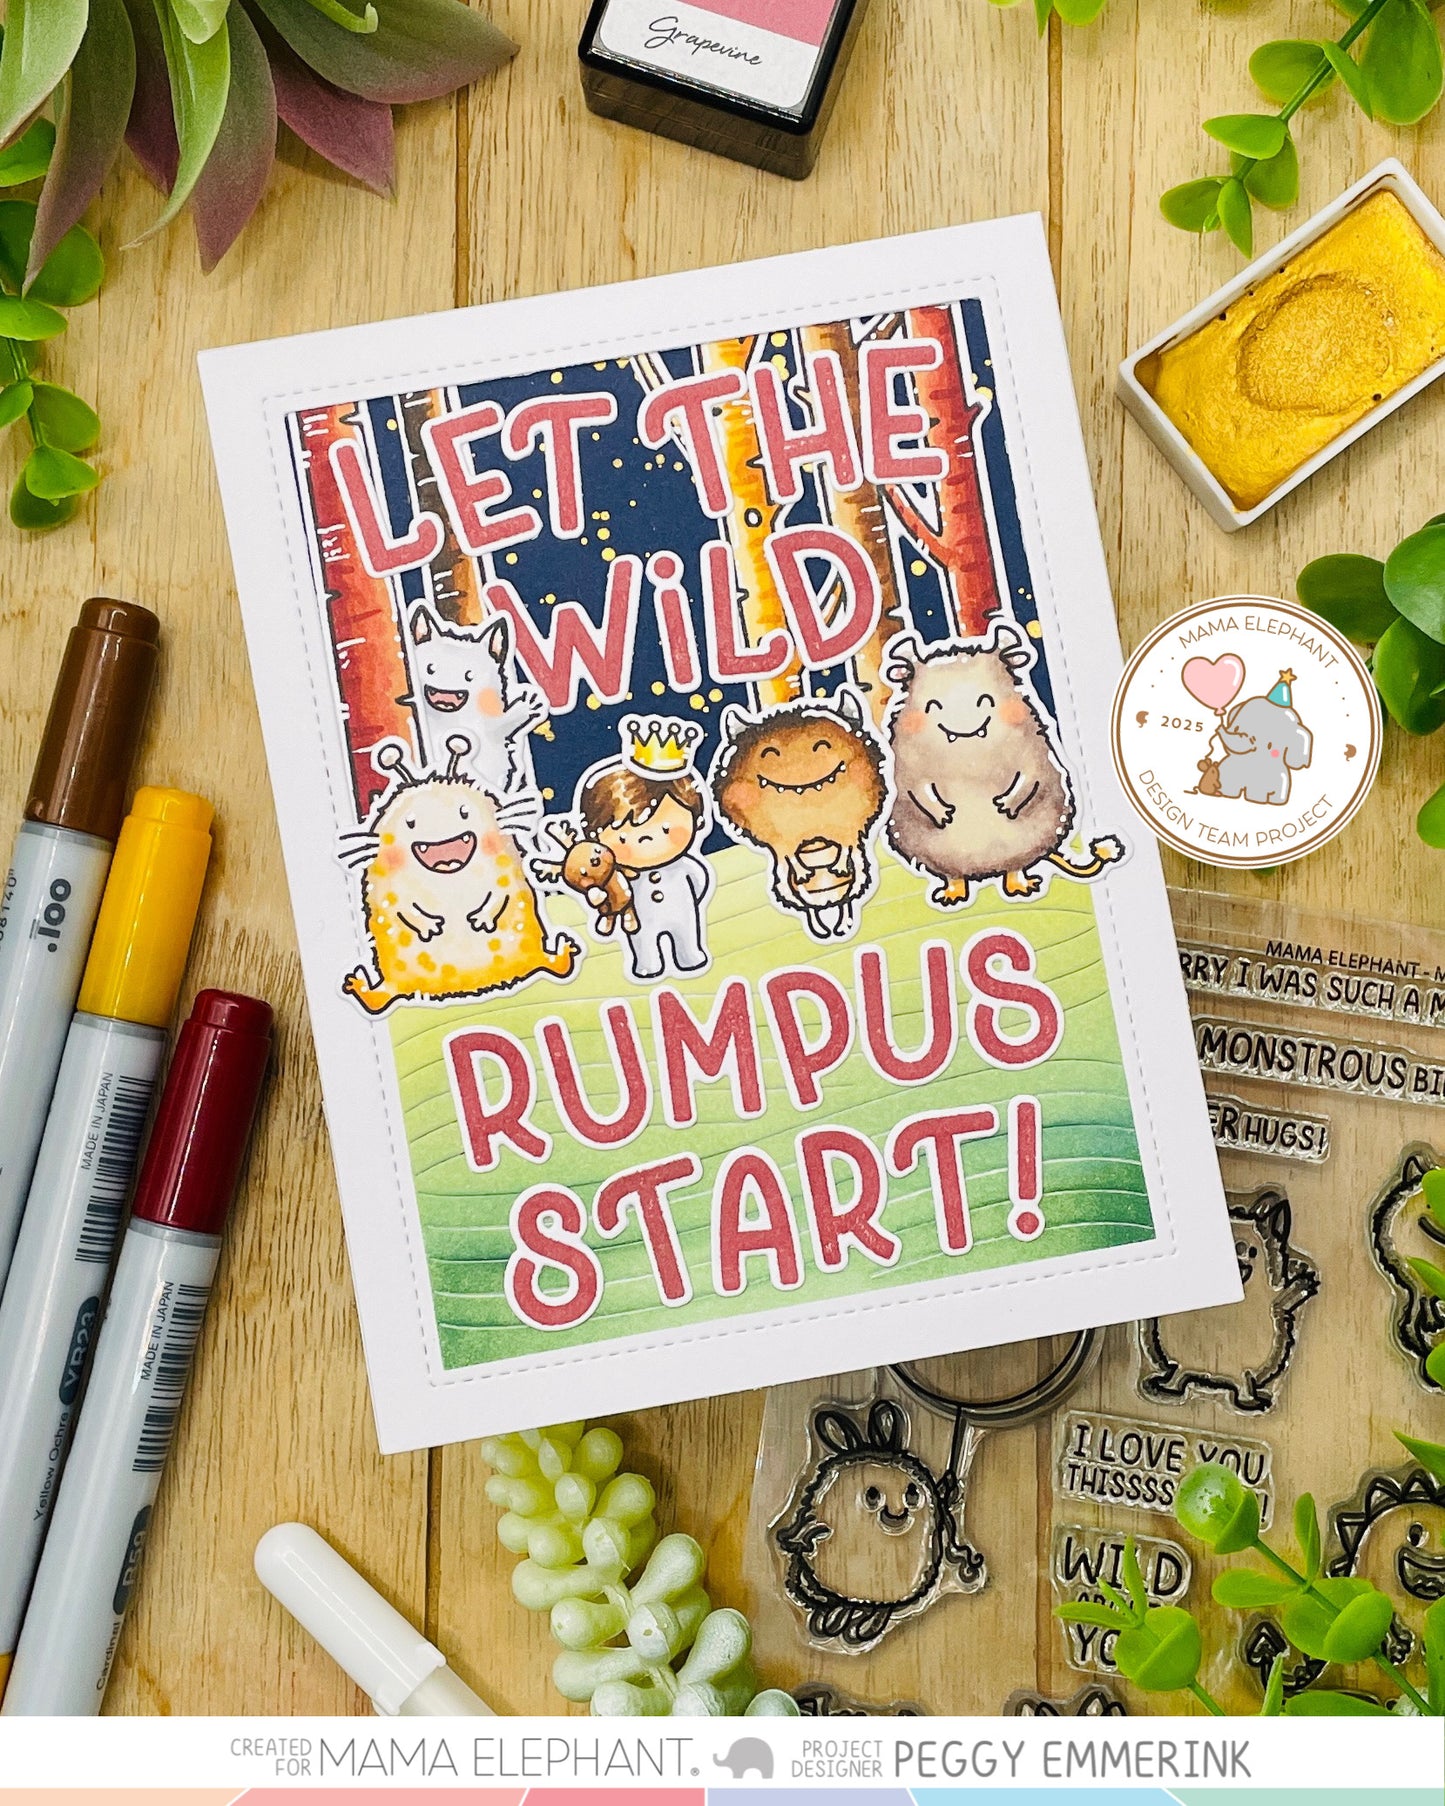 Grapevine
LET THE
WiLD
RUMPUS
START!
MAMA ELEPHANT
2025
DESIGN TEAM PROJECT
.100
08140"
MADE IN JAPAN
YR23
Yellow Ochre
MADE IN JAPAN
R59
Cardinal
MAMA ELEPHANT - M
RRY I WAS SUCH A M
MONSTROUS BI
ER HUGS!
I LOVE YOU
THISSSS
WILD
YO
CREATED FOR MAMA ELEPHANT® PROJECT DESIGNER PEGGY EMMERINK